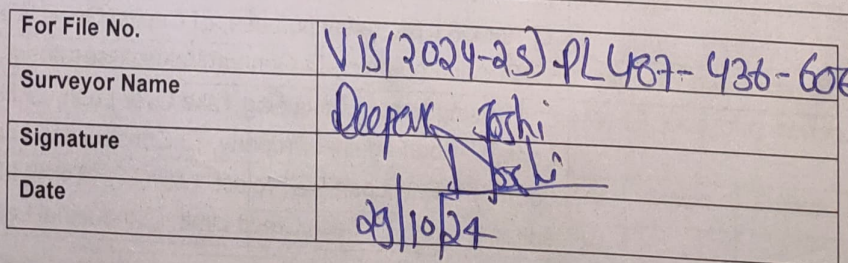 For File No. VIS(2024-25)-PL487-436-606
Surveyor Name Deepak Joshi
Signature Joshi
Date 29/10/24